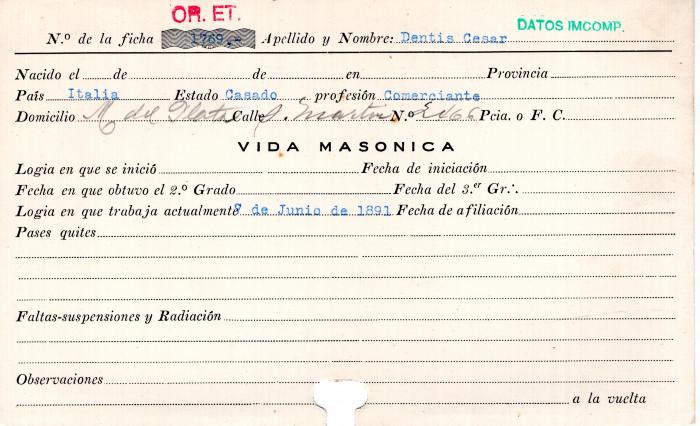 OR. ET.
DATOS IMCOMP.
N.º de la ficha 1769 Apellido y Nombre: Dentis Cesar
Nacido el de de en Provincia
País Italia Estado Casado profesión Comerciante
Domicilio M del Plata Calle S. Martin N.º 2466 Pcia. o F. C.
VIDA MASONICA
Logia en que se inició Fecha de iniciación
Fecha en que obtuvo el 2.º Grado Fecha del 3.er Gr∴
Logia en que trabaja actualmente 8 de Junio de 1891 Fecha de afiliación
Pases quites
Faltas-suspensiones y Radiación
Observaciones
a la vuelta